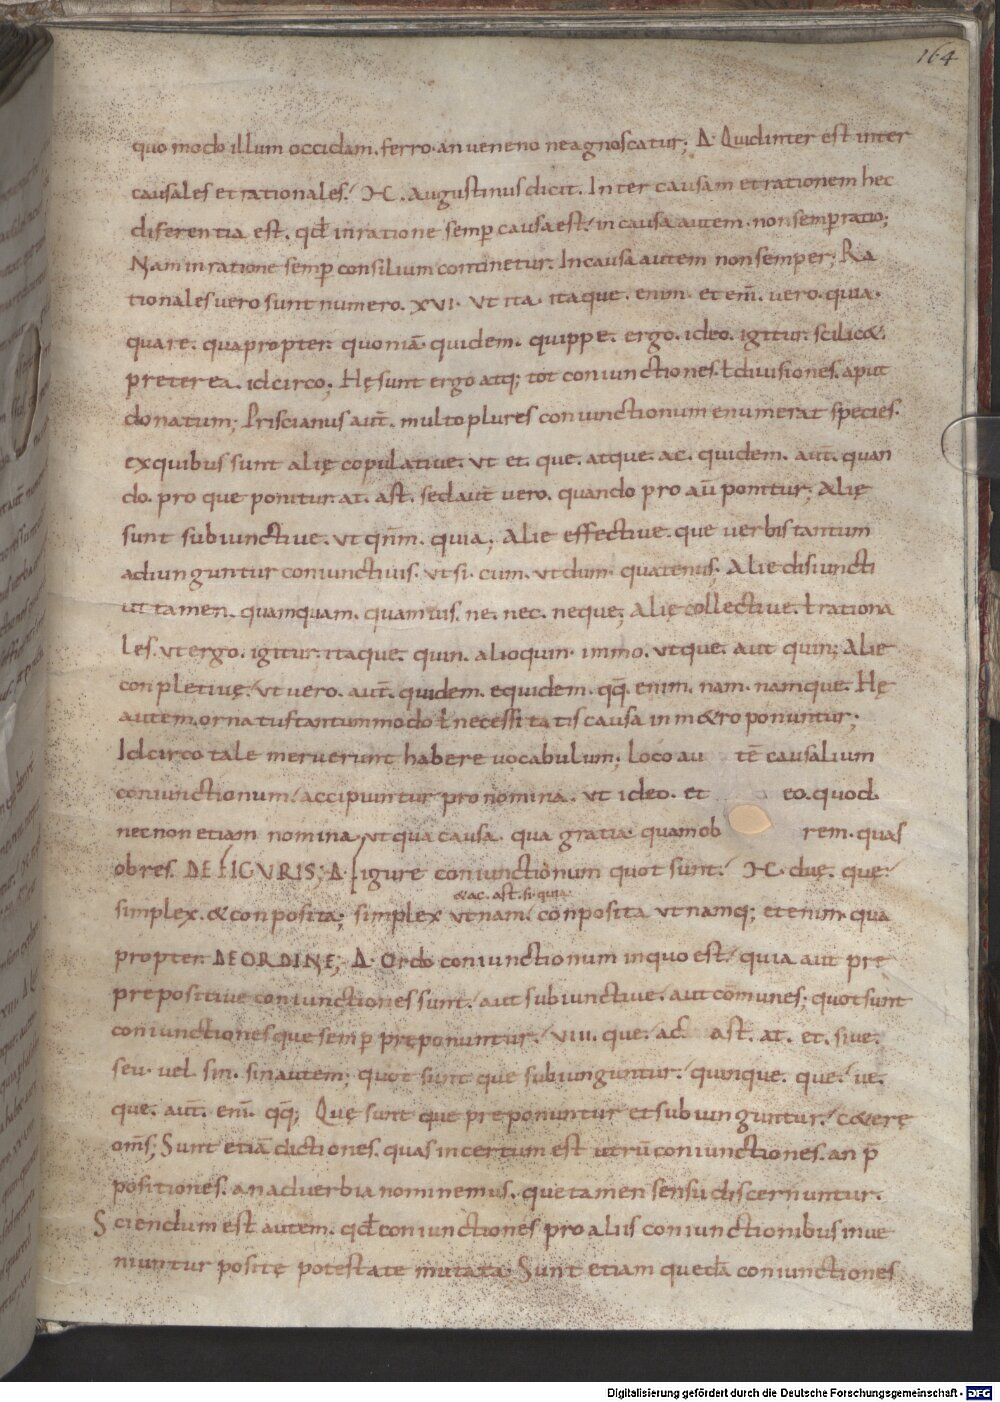 164
quo modo illum occidam. ferro. an veneno ne agnoscatur; Δ. Quid inter est inter
causales et rationales. M. Augustinus dicit. Inter causam et rationem hec
diferentia est. qđ in ratione semp causa est. in causa autem. non semp ratio;
Nam in ratione semp consilium continetur. In causa autem non semper; Ra
tionales vero sunt numero. XVI. Ut ita. itaque. enim. et eni. vero. quia.
quare. quapropter. quoniā. quidem. quippe. ergo. ideo. igitur. scilic&.
preterea. idcirco; Hę sunt ergo atq; tot coniunctiones. ł divisiones. aput
donatum; Priscianus aut̄. multo plures coniunctionum enumerat species.
ex quibus sunt alię copulative. ut et. que. atque. ac. quidem. aut̄. quan
do. pro que ponitur. at. ast. sed aut̄ vero. quando pro aū ponitur; Alię
sunt subiunctive. ut qn̄m. quia; Alie effective. que verbis tantum
adiunguntur coniunctivis. ut si. cum. ut dum. quatenus; Alie disiuncti
ut tamen. quamquam. quamvis. ne. nec. neque; Alię collective. ł rationa
les. ut ergo. igitur. itaque. quin. alioquin. immo. utque. aut quin; Alie
conpletivę. ut vero. aut̄. quidem. equidem. qq̄. enim. nam. namque. Hę
autem. ornatus tantummodo ł necessitatis causa in m&ro ponuntur;
Idcirco tale meruerunt habere vocabulum; Loco au tē causalium
coniunctionum. accipiuntur pronomina. ut ideo. et eo. quod.
necnon etiam nomina. ut qua causa. qua gratia. quamob rem. quas
obres. DE FIGURIS; Δ. Figure coniunctionum quot sunt. M. duę. que.
&ac. ast. si. quia.
simplex. & conposita; simplex ut nam. conposita ut namq; etenim. qua
propter. DE ORDINE; Δ. Ordo coniunctionum in quo est. quia aut pre
prepositive coniunctiones sunt. aut subiunctive. aut com̄unes; quot sunt
coniunctiones que semp pręponuntur. VIII. que. ac. ast. at. et. sive.
seu. vel. sin. sin autem; quot sunt que subiunguntur. quinque. que. ve.
que. aut̄. enī. qq̄; Quę sunt que preponuntur et subiunguntur. c&erę
om̄s; Sunt etiā dictiones. quas incertum est utrū coniunctiones. an p̄
positiones. an adverbia nominemus. que tamen sensu discernuntur.
Sciendum est autem. qđ coniunctiones pro aliis coniunctionibus inve
niuntur positę potestate mutata. Sunt etiam quedā coniunctiones
Digitalisierung gefördert durch die Deutsche Forschungsgemeinschaft - DFG